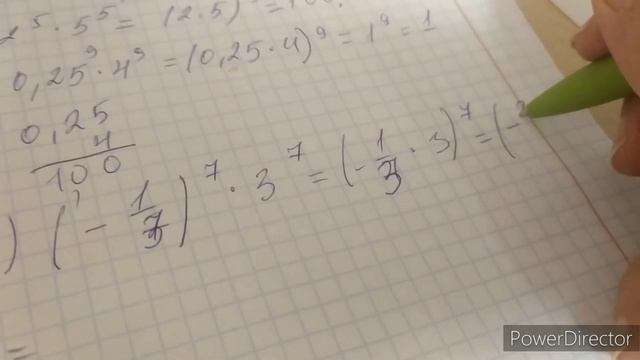 2⁵ · 5⁵ = (2 · 5)
0,25⁹ · 4⁹ = (0,25 · 4)⁹ = 1⁹ = 1
0,25
4
1,00
) (- 1/3)⁷ · 3⁷ = (- 1/3 · 3)⁷ = (-
=
PowerDirector